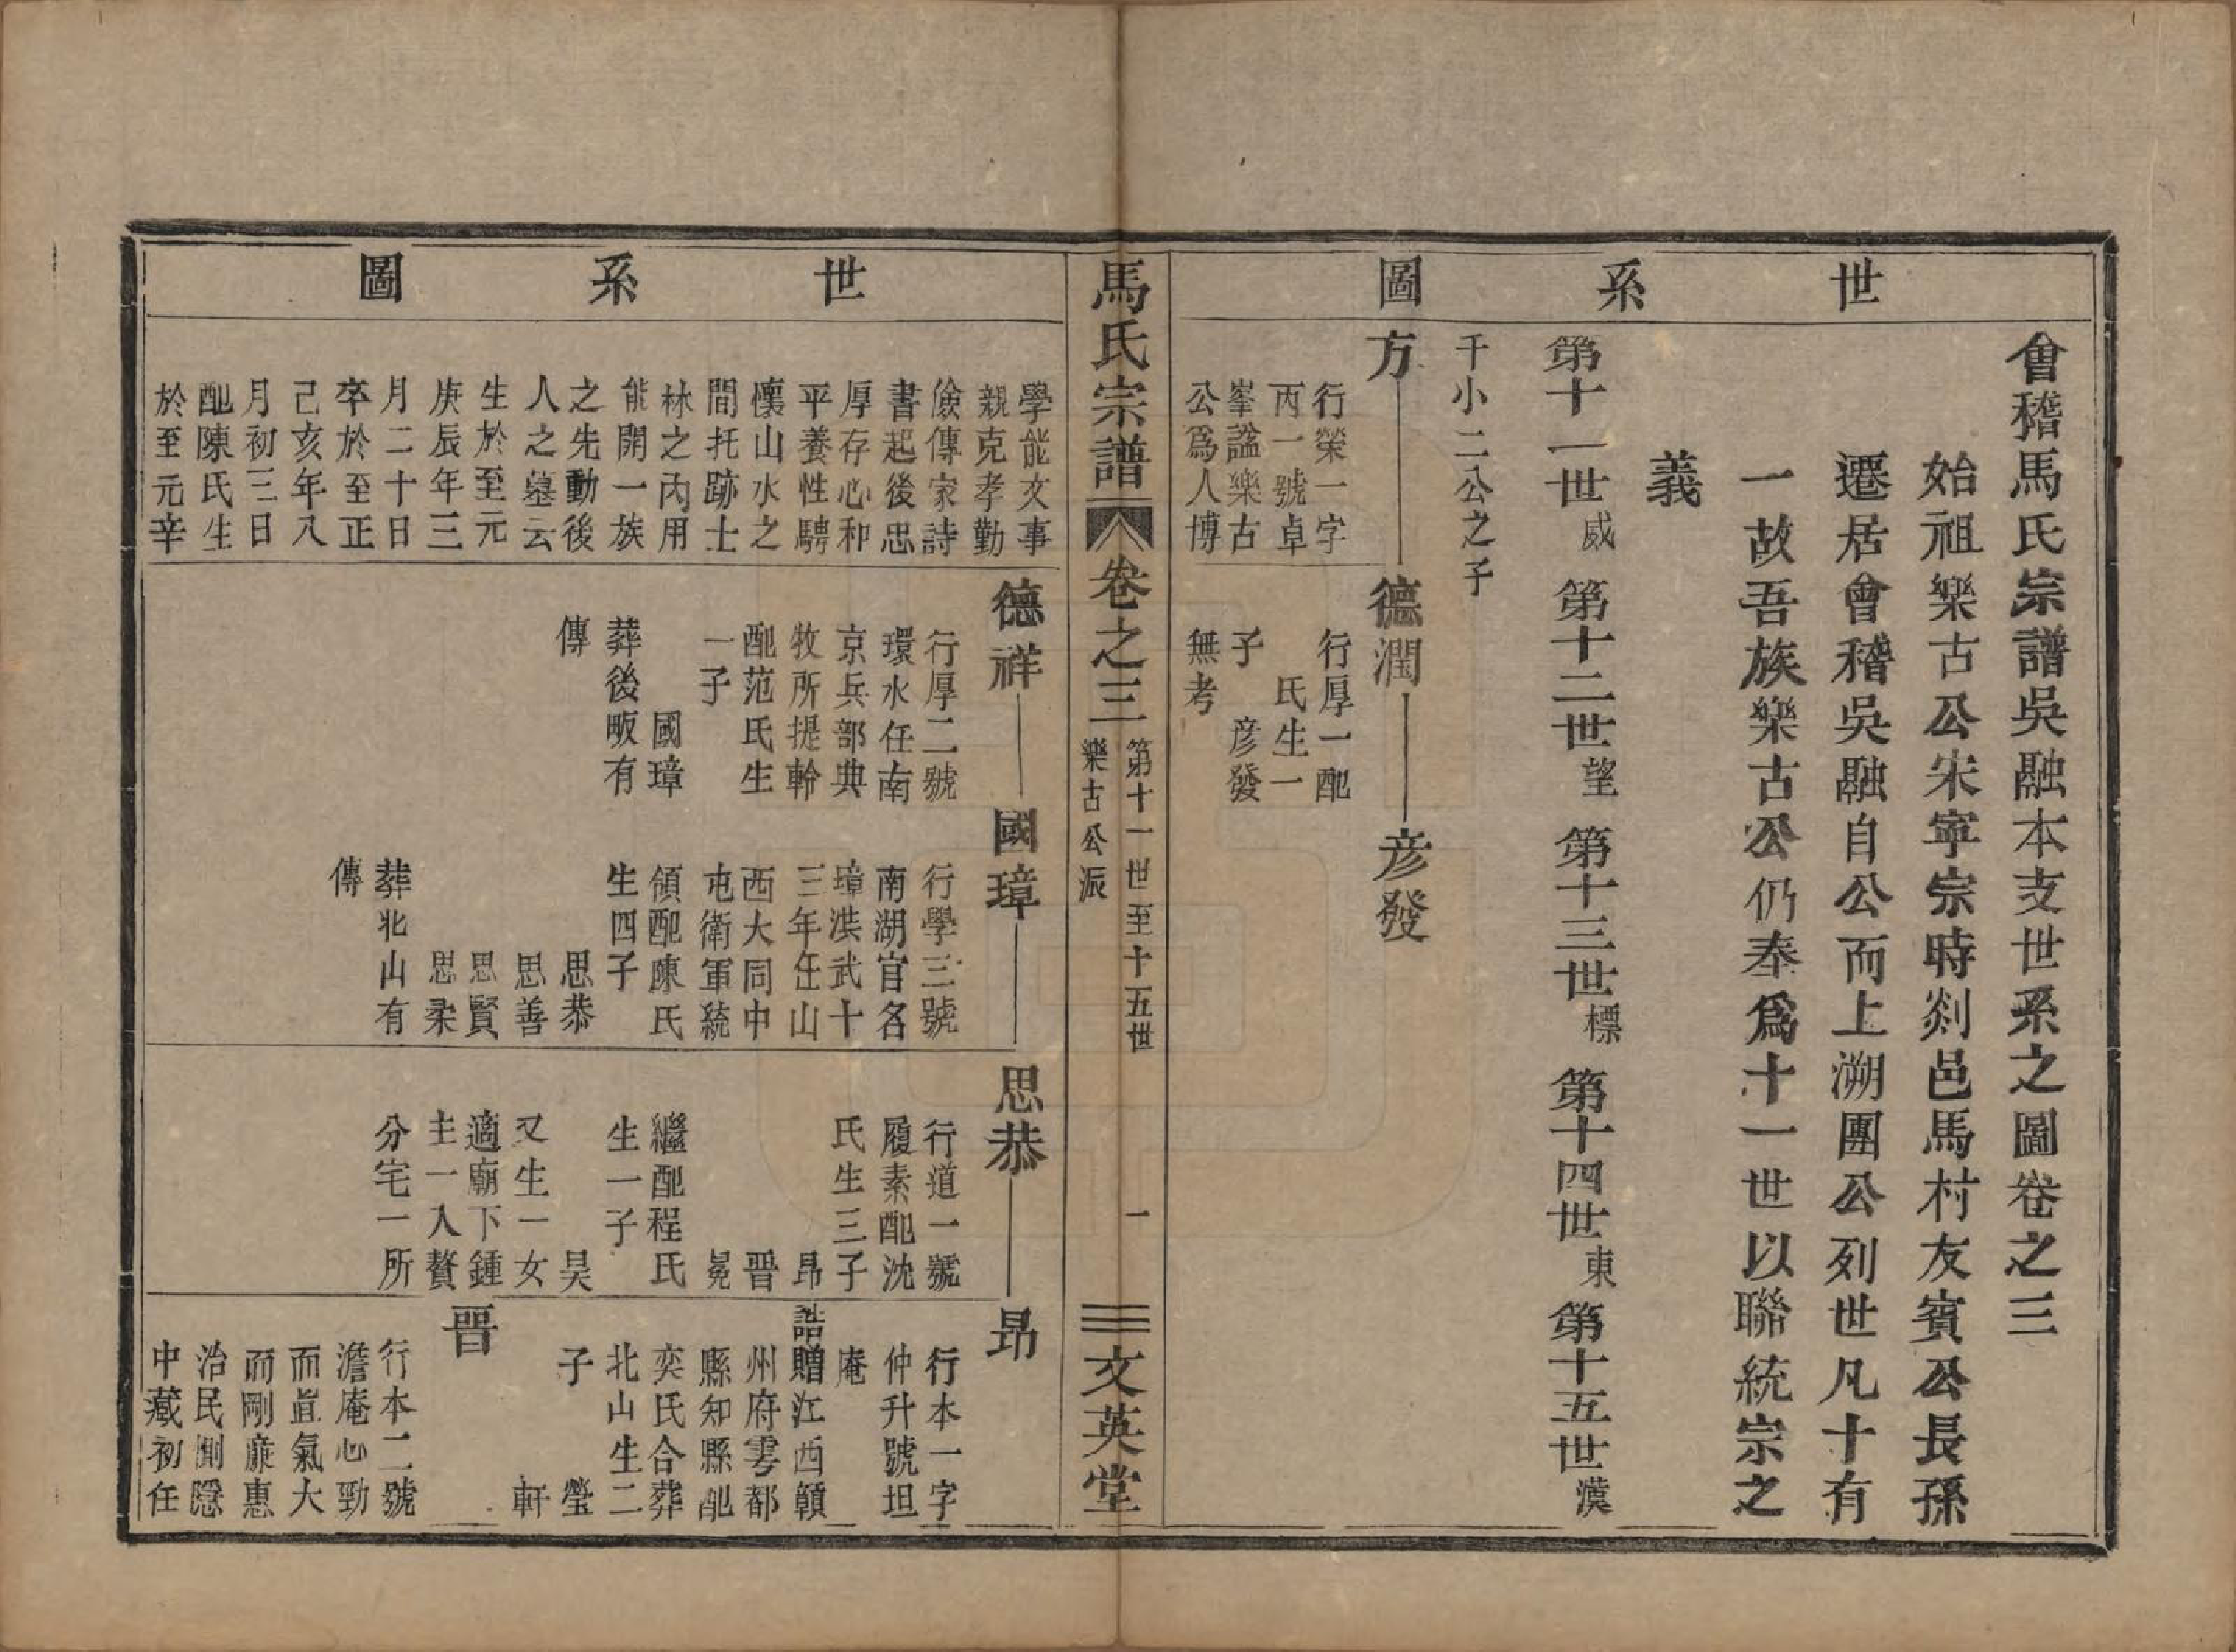 世系圖
會稽馬氏宗譜吳融本支世系之圖卷之三
始祖樂古公宋寧宗時剡邑馬村友賓公長孫
遷居會稽吳融自公而上溯團公列世凡十有
一故吾族樂古公仍奉爲十一世以聯統宗之
義
第十一世威 第十二世望 第十三世標 第十四世東 第十五世漢
千小二公之子
方
行榮一字
丙一號卓
峯諡樂古
公爲人博
德潤
行厚一配
氏生一
子 彦發
無考
彦發
馬氏宗譜 卷之三
第十一世至十五世
樂古公派
一
文英堂
世系圖
學能文事
親克孝勤
儉傳家詩
書起後忠
厚存心和
平養性騁
懷山水之
間托跡士
林之內用
能開一族
之先動後
人之墓云
生於至元
庚辰年三
月二十日
卒於至正
己亥年八
月初三日
配陳氏生
於至元辛
德祥
行厚二號
環水任南
京兵部典
牧所提幹
配范氏生
一子
國璋
葬後畈有
傳
國璋
行學三號
南湖官名
璋洪武十
三年任山
西大同中
屯衛軍統
領配陳氏
生四子
思恭
思善
思賢
思柔
葬北山有
傳
思恭
行道一號
履素配沈
氏生三子
昂
晋
冕
繼配程氏
生一子
昊
又生一女
適廟下鍾
主一入贅
分宅一所
昂
行本一字
仲升號坦
庵
誥贈江西贛
州府雩都
縣知縣配
奕氏合葬
北山生二
子 瑩
軒
晋
行本二號
澹庵心勁
而直氣大
而剛廉惠
治民惻隱
中藏初任